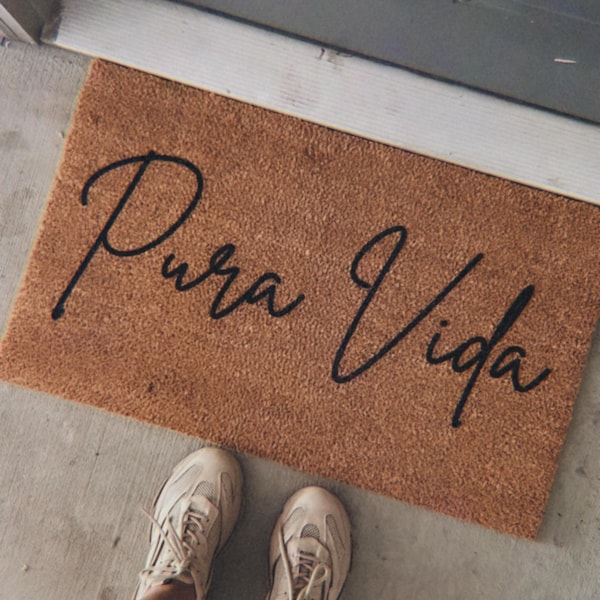 Pura Vida